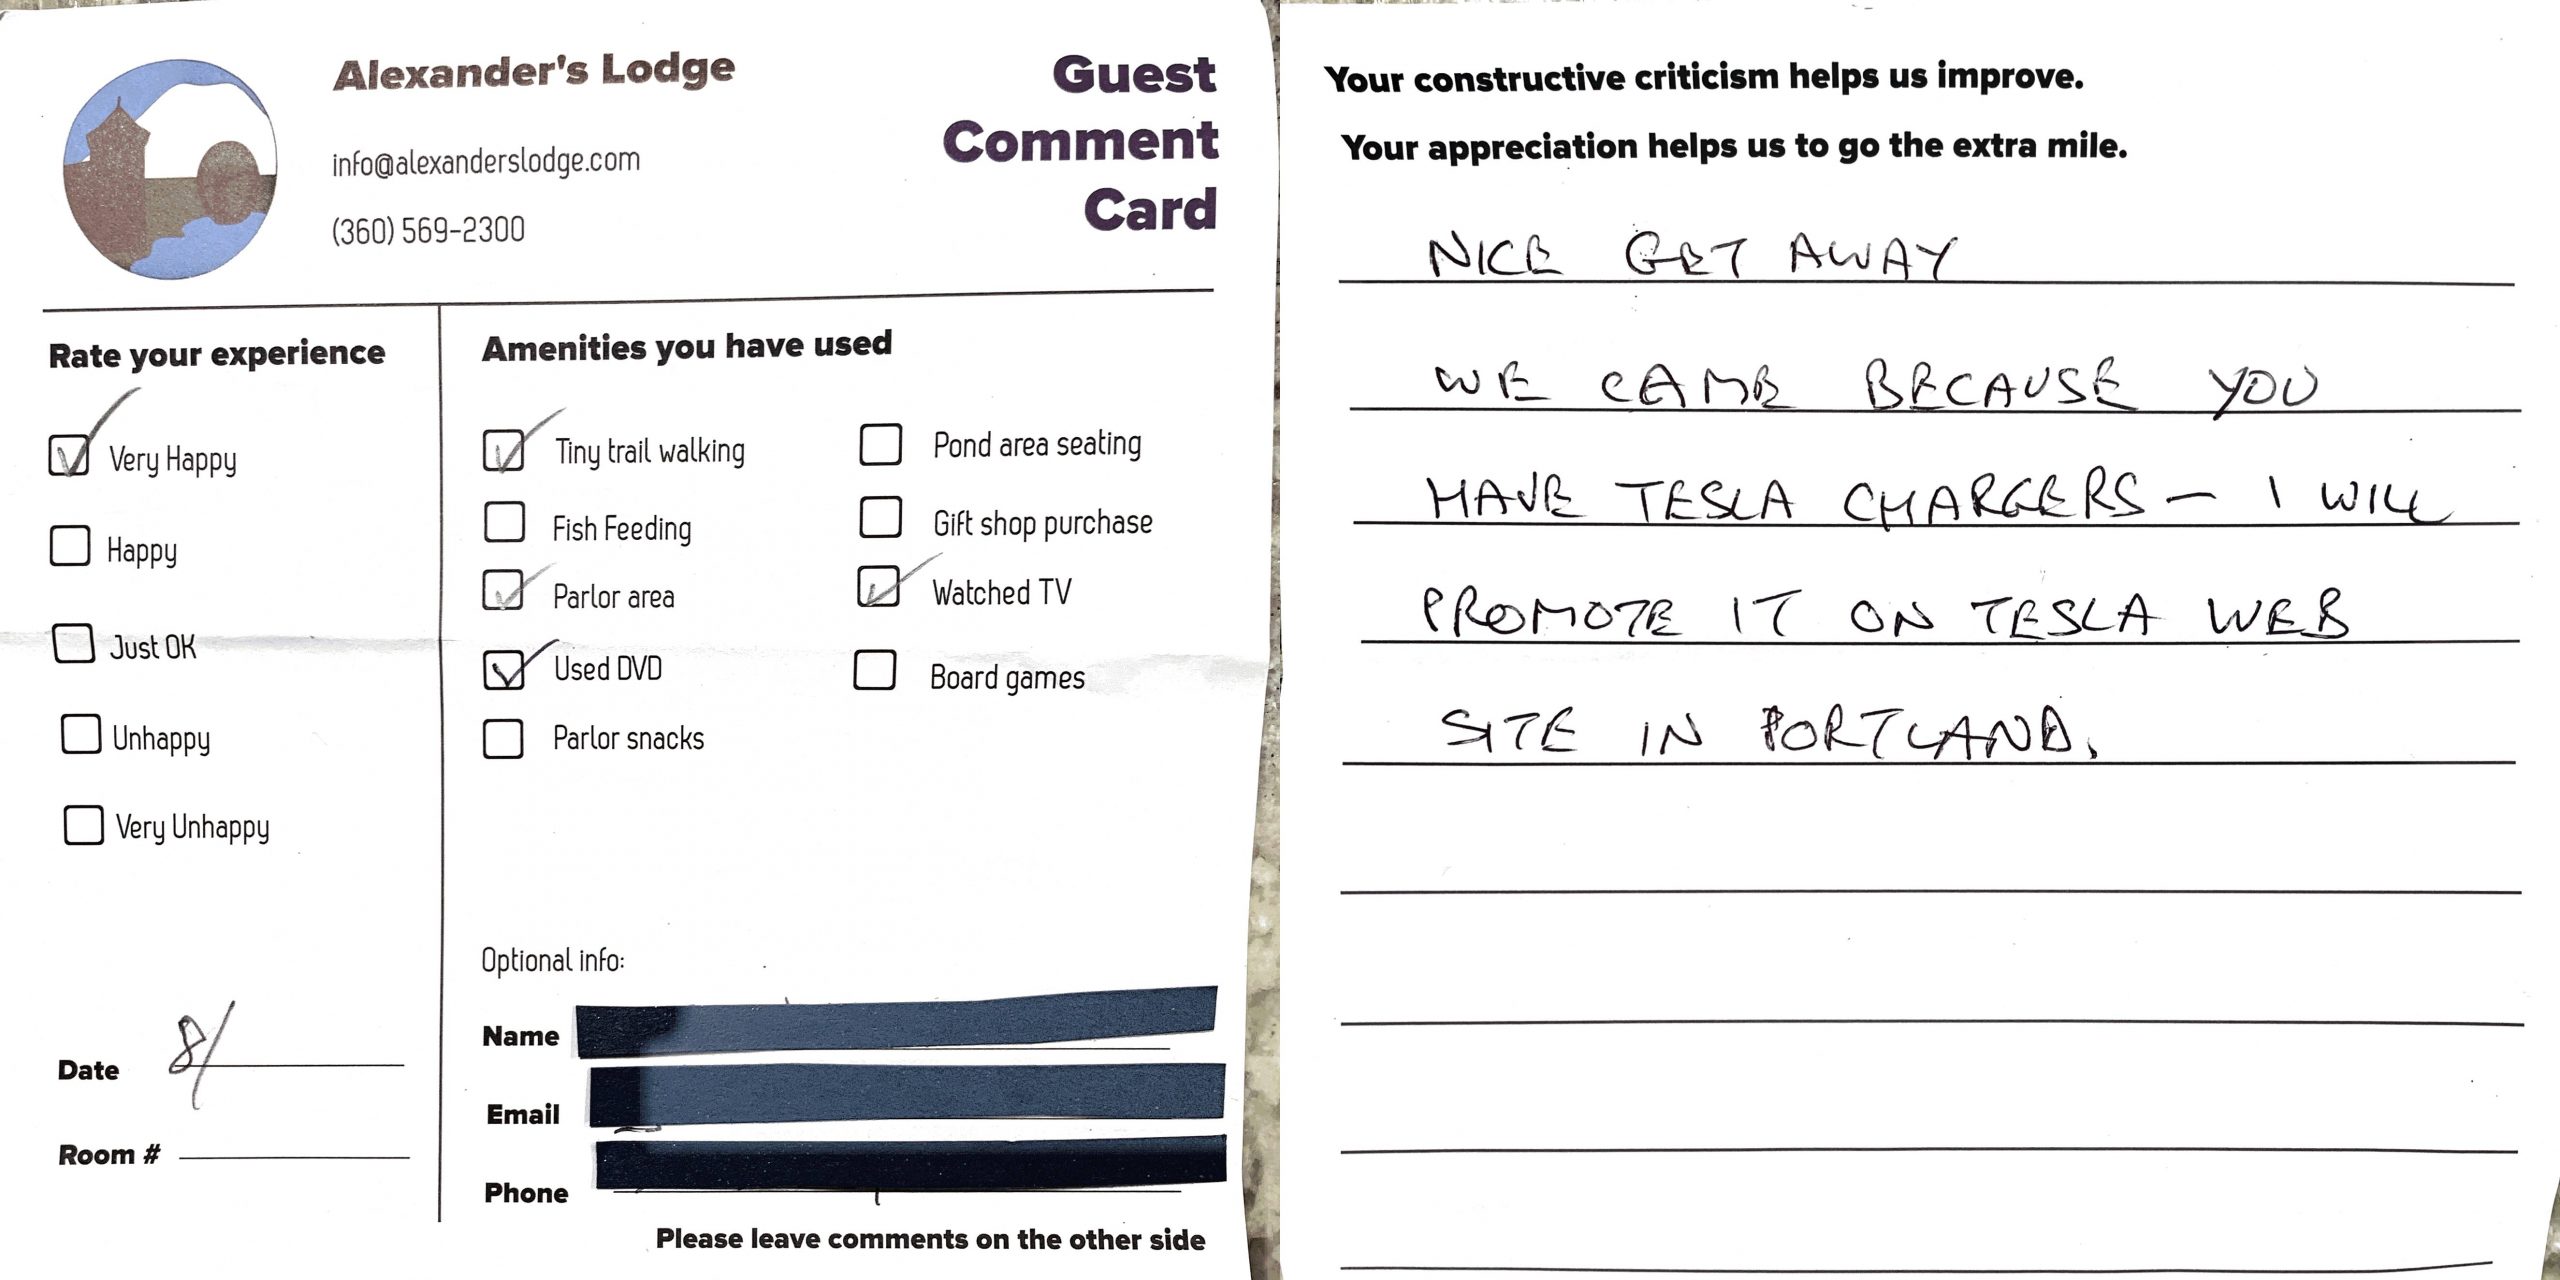 Alexander's Lodge
info@alexanderslodge.com
(360) 569-2300
Guest
Comment
Card
Rate your experience
Very Happy
Happy
Just OK
Unhappy
Very Unhappy
Date 8/
Room #
Amenities you have used
Tiny trail walking
Fish Feeding
Parlor area
Used DVD
Parlor snacks
Pond area seating
Gift shop purchase
Watched TV
Board games
Optional info:
Name
Email
Phone
Please leave comments on the other side
Your constructive criticism helps us improve.
Your appreciation helps us to go the extra mile.
NICE GET AWAY
WE CAME BECAUSE YOU
HAVE TESLA CHARGERS — I WILL
PROMOTE IT ON TESLA WEB
SITE IN PORTLAND.